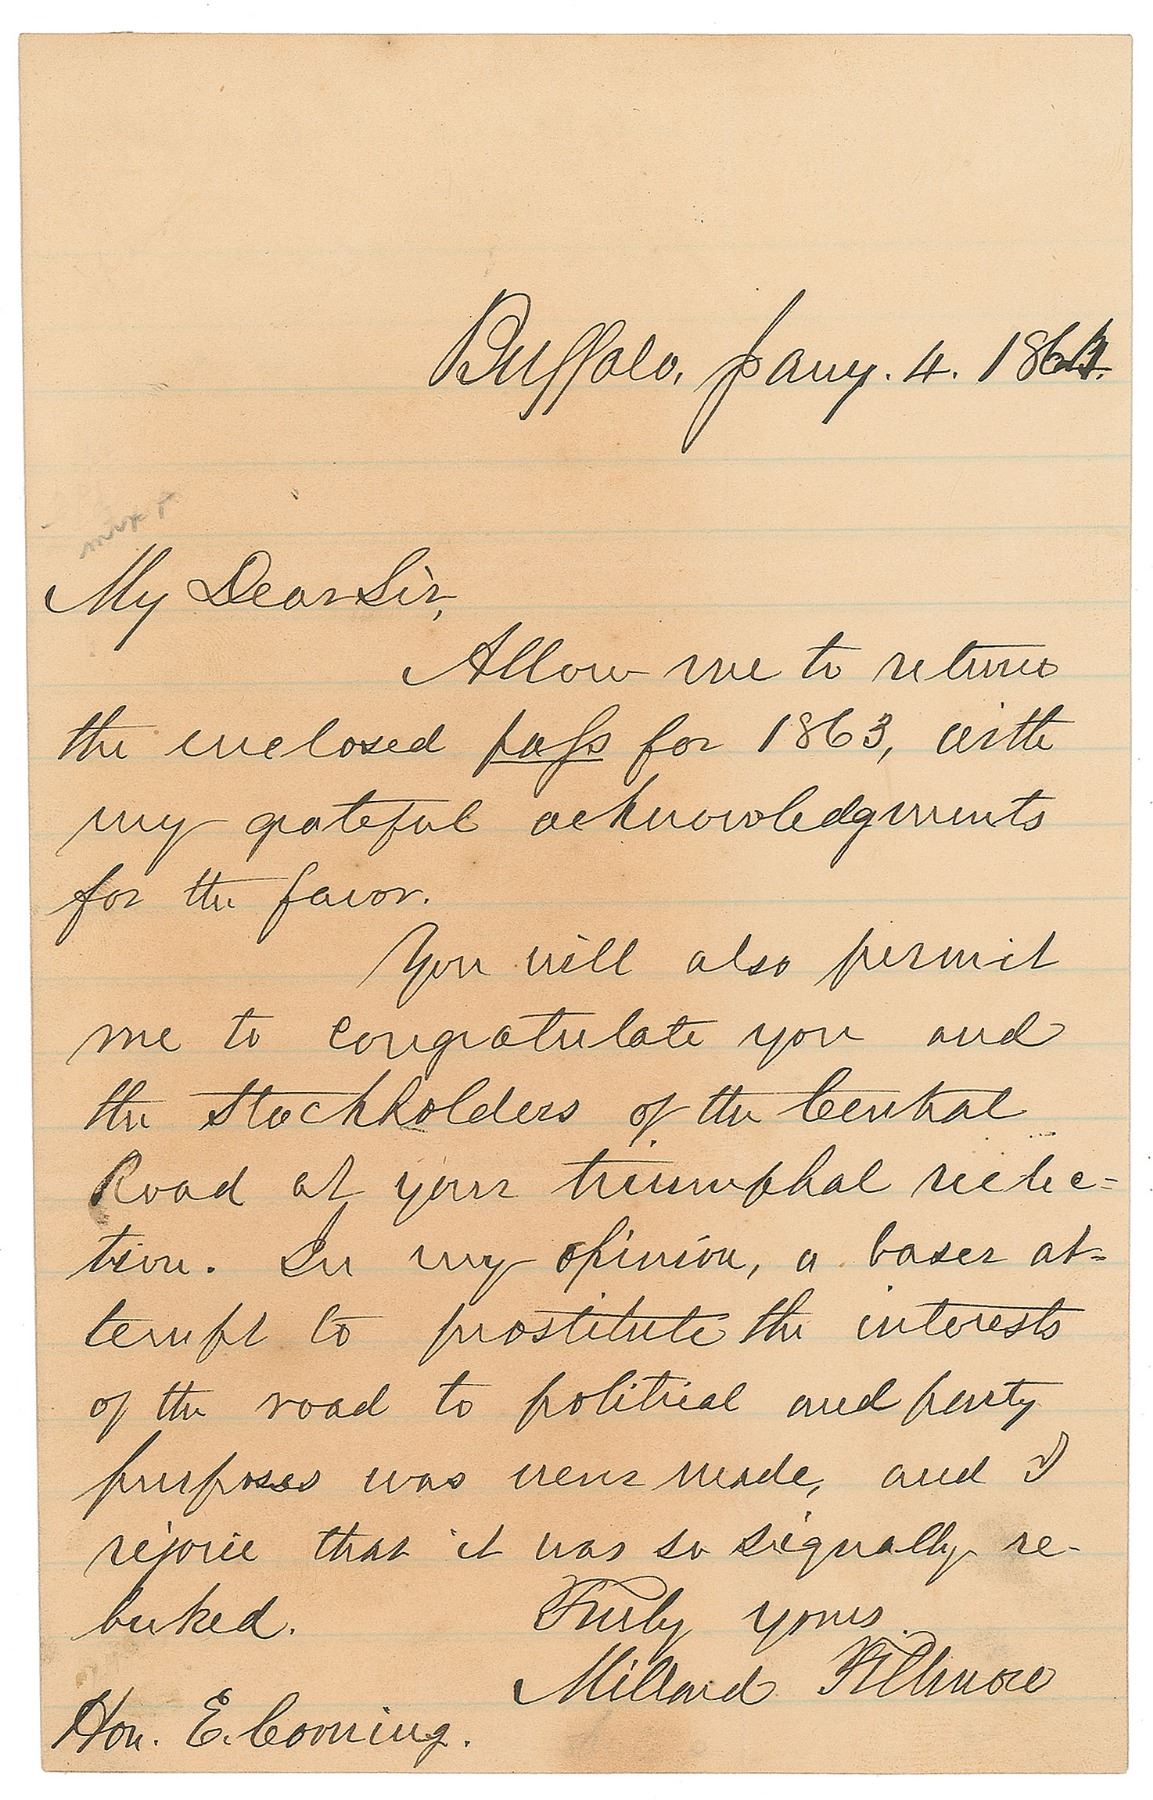 Buffalo, Jany. 4. 1864.
My Dear Sir,
Allow me to return
the enclosed pass for 1863, with
my grateful acknowledgments
for the favor.
You will also permit
me to congratulate you and
the Stockholders of the Central
Road at your triumphal reelec-
tion. In my opinion, a baser at-
tempt to prostitute the interests
of the road to political and party
purposes was never made, and I
rejoice that it was so signally re-
buked. Truly yours
Millard Fillmore
Hon. E. Corning.